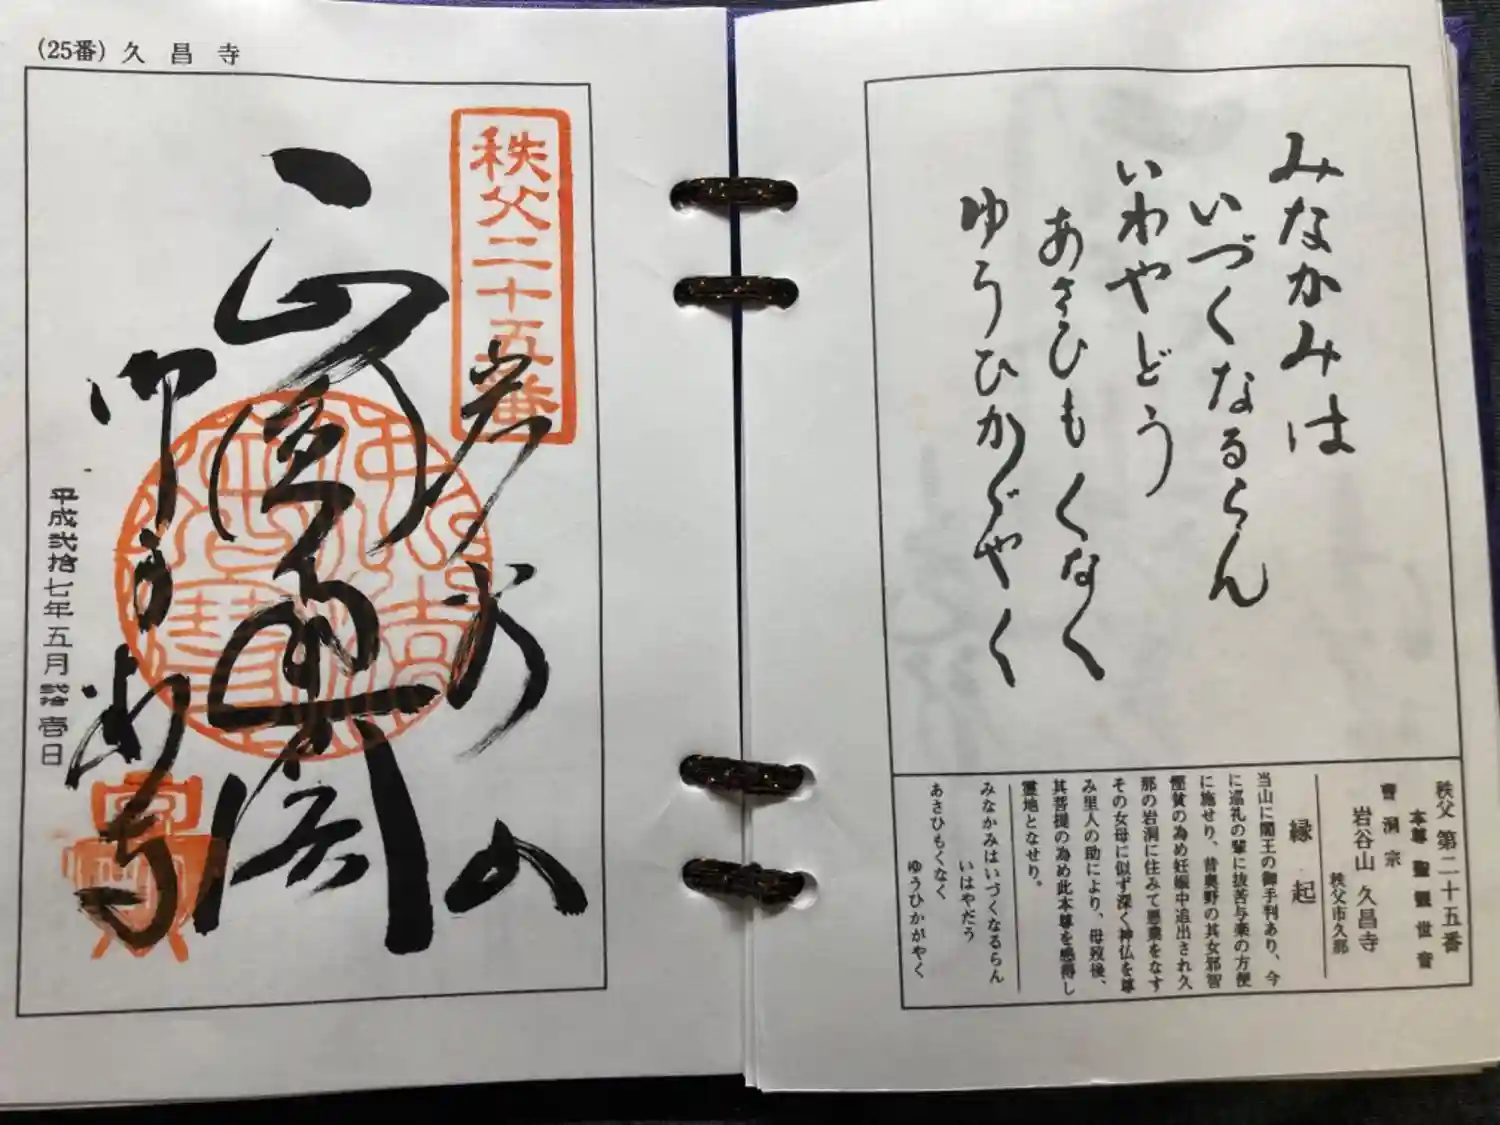 (25番) 久昌寺
秩父二十五番
岩谷山
御手判寺
平成弐拾七年五月弐拾壱日
みなかみは
いづくなるらん
いわやどう
あさひもくなく
ゆうひかゞやく
秩父 第二十五番
本尊 聖観世音
曹洞宗
岩谷山 久昌寺
秩父市久那
縁起
当山に閻王の御手判あり、今
に巡礼の輩に抜苦与楽の方便
に施せり、昔奥野の其女邪智
慳貧の為め妊娠中追出され久
那の岩洞に住みて悪業をなす
その女母に似ず深く神仏を尊
み里人の助により、母歿後、
其菩提の為め此本尊を感得し
霊地となせり。
みなかみはいづくなるらん
いはやだう
あさひもくなく
ゆうひかがやく